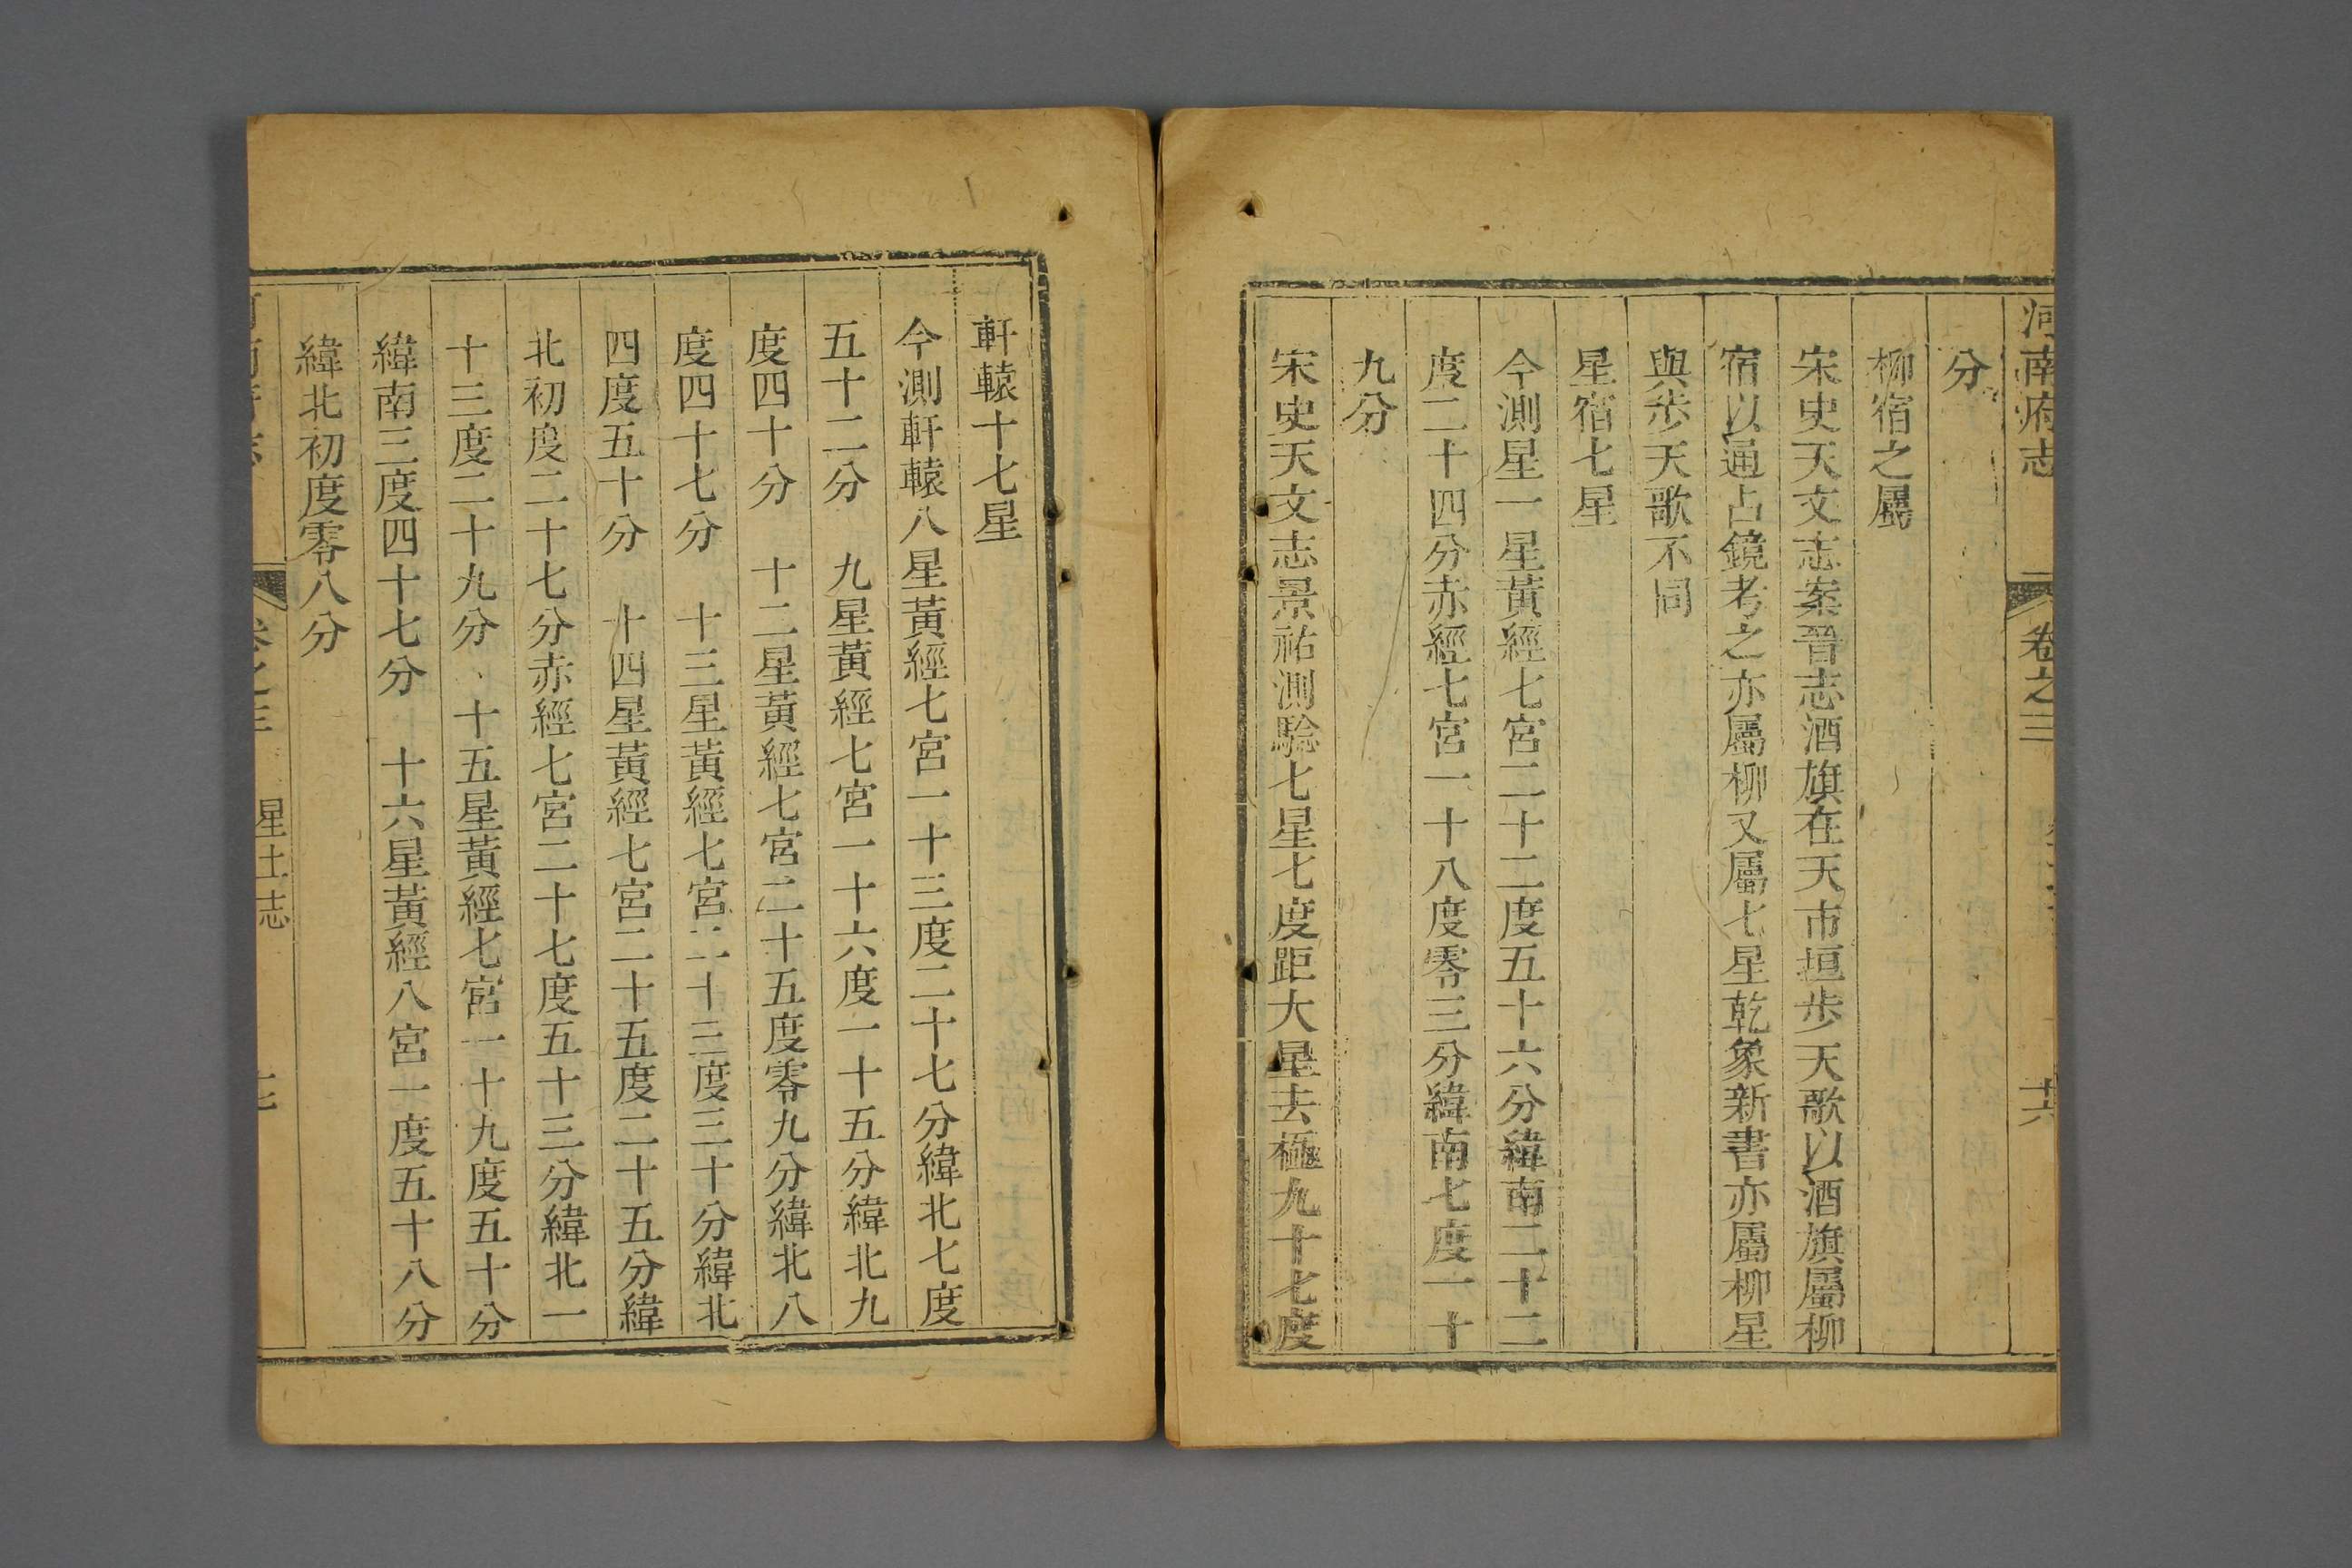 河南府志 卷之三 十六
分
柳宿之屬
宋史天文志案晉志酒旗在天市垣步天歌以酒旗屬柳
宿以通占鏡考之亦屬柳又屬七星乾象新書亦屬柳星
與步天歌不同
星宿七星
今測星一星黃經七宮二十二度五十六分緯南二十二
度二十四分赤經七宮一十八度零三分緯南七度一十
九分
宋史天文志景祐測驗七星七度距大星去極九十七度
軒轅十七星
今測軒轅八星黃經七宮一十三度二十七分緯北七度
五十二分 九星黃經七宮一十六度一十五分緯北九
度四十分 十二星黃經七宮二十五度零九分緯北八
度四十七分 十三星黃經七宮二十三度三十分緯北
四度五十分 十四星黃經七宮二十五度二十五分緯
北初度二十七分赤經七宮二十七度五十三分緯北一
十三度二十九分 十五星黃經七宮一十九度五十分
緯南三度四十七分 十六星黃經八宮一度五十八分
緯北初度零八分
星土志